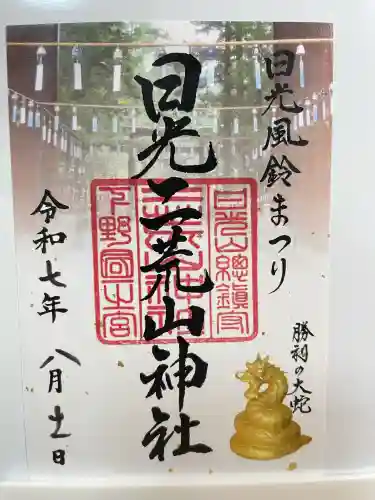 日光風鈴まつり
日光二荒山神社
勝祠の大蛇
令和七年
八月十一日
日光山總鎮守
二荒山神社
下野國一之宮